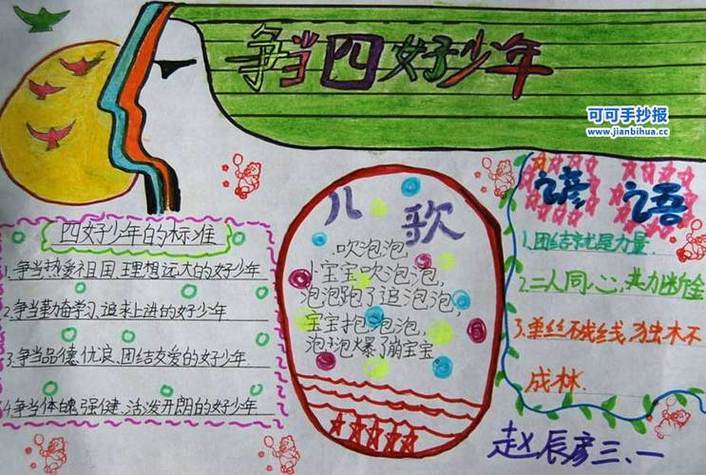 争当四好少年
可可手抄报
www.jianbihua.cc
四好少年的标准
1、争当热爱祖国、理想远大的好少年
2、争当勤奋学习、追求上进的好少年
3、争当品德优良、团结友爱的好少年
4、争当体魄强健、活泼开朗的好少年
儿歌
吹泡泡
小宝宝吹泡泡,
泡泡跑了追泡泡,
宝宝抱泡泡,
泡泡爆了崩宝宝
谚语
1、团结就是力量
2、二人同心,其力断金
3、单丝不成线,独木不
成林.
赵辰彦三、一